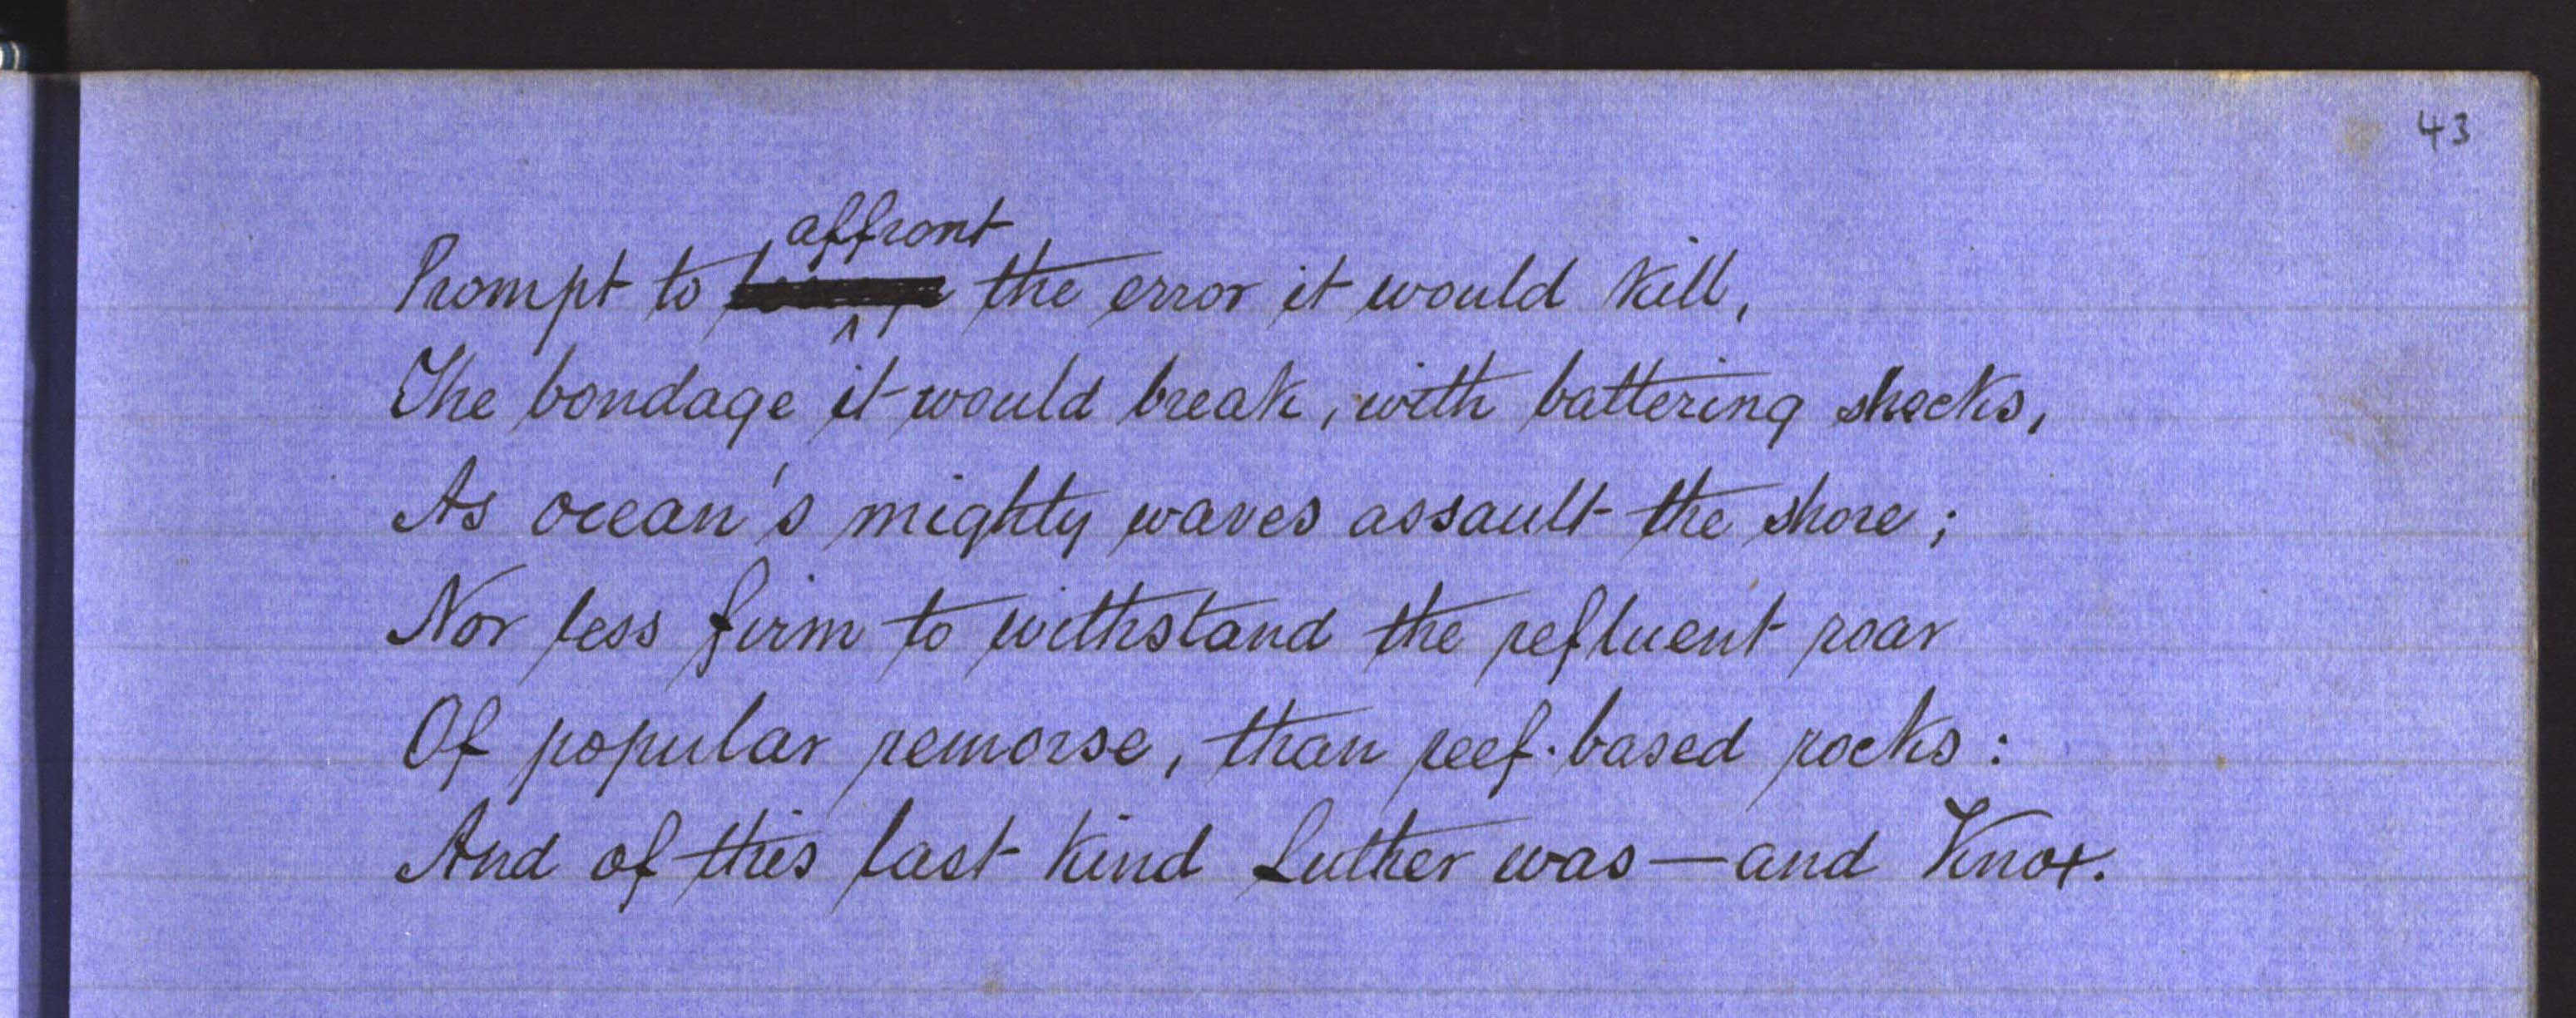 43
affront
Prompt to the error it would kill,
The bondage it would break, with battering shocks,
As ocean's mighty waves assault the shore;
Nor less firm to withstand the refluent roar
Of popular remorse, than reef-based rocks:
And of this last kind Luther was—and Knox.